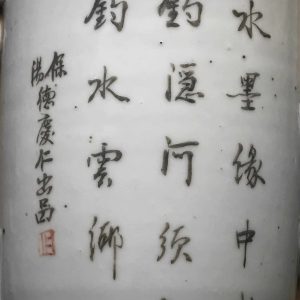 水墨緣中
釣隱河須
釣水雲鄉
保
陽德慶仁出品